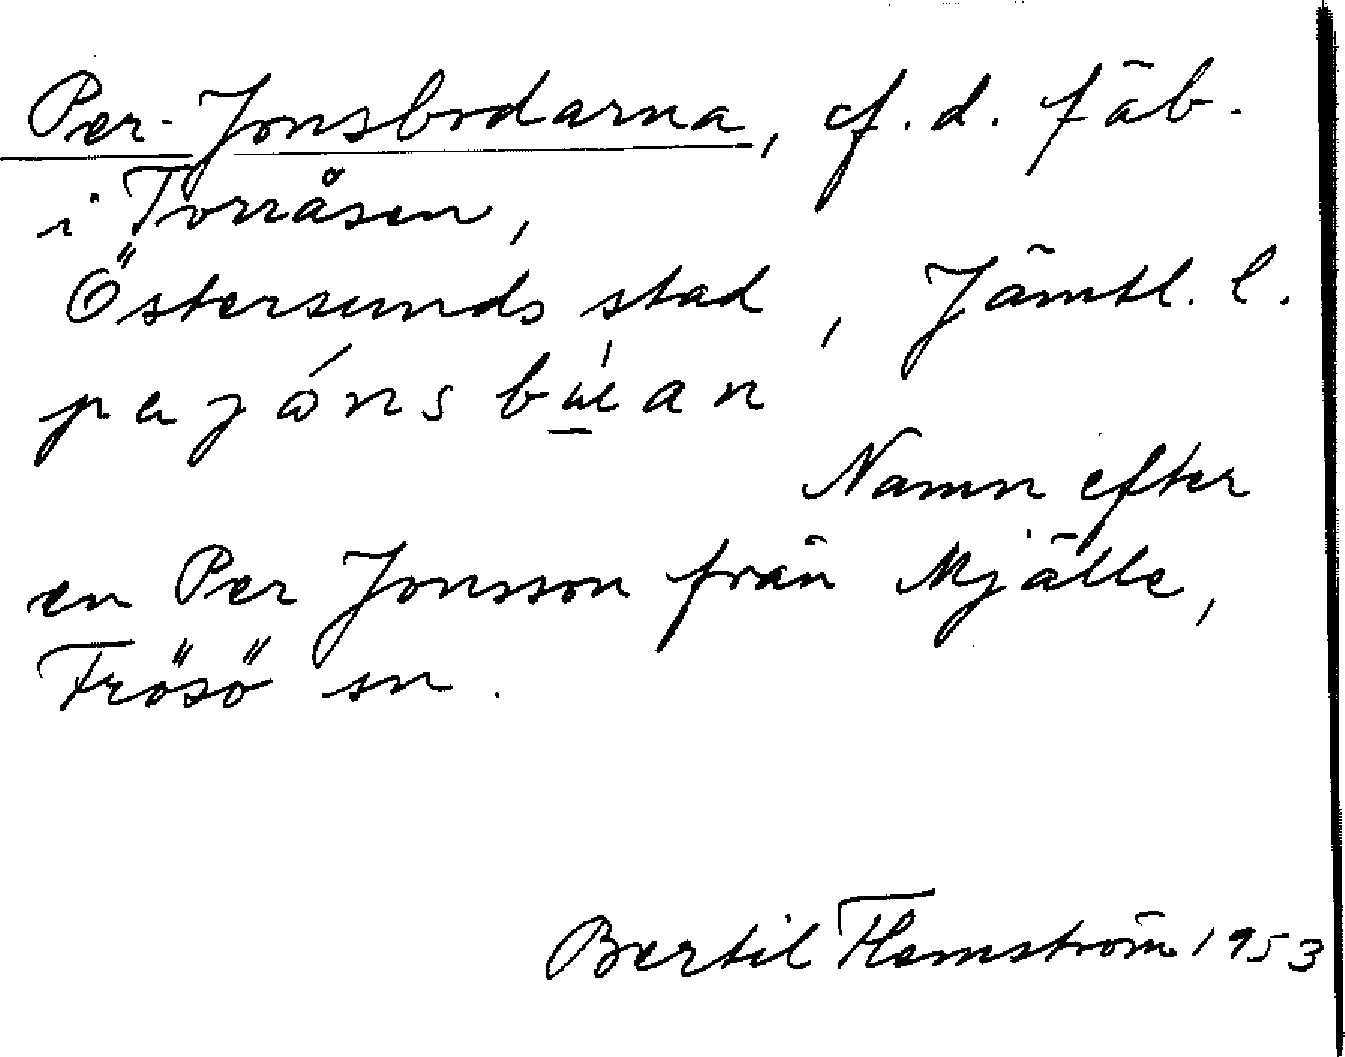 Per-Jonsbodarna, f.d. fäb.
i Torråsen,
Östersunds stad, Jämtl. l.
Namn efter
en Per Jonsson från Mjälle,
Frösö sn.
Bertil Flemström 1953